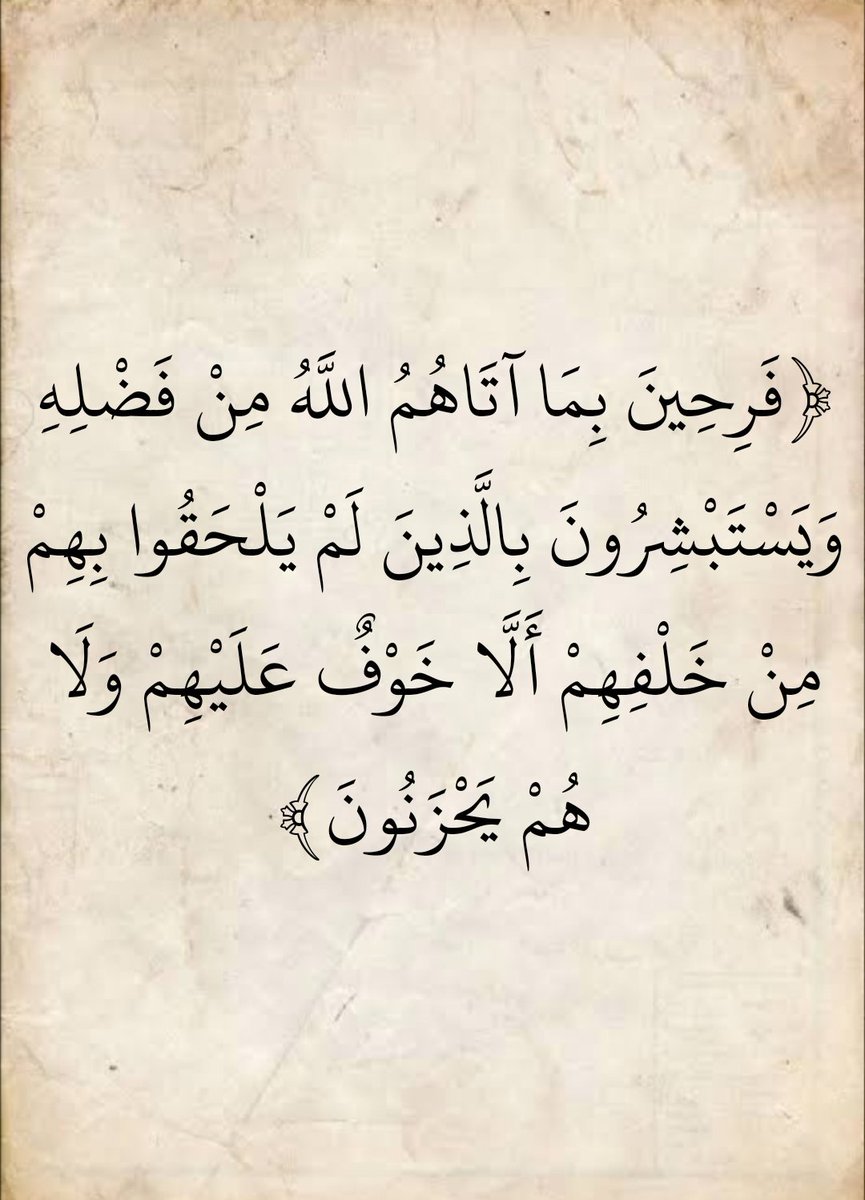 ﴿فَرِحِينَ بِمَا آتَاهُمُ اللَّهُ مِنْ فَضْلِهِ
وَيَسْتَبْشِرُونَ بِالَّذِينَ لَمْ يَلْحَقُوا بِهِمْ
مِنْ خَلْفِهِمْ أَلَّا خَوْفٌ عَلَيْهِمْ وَلَا
هُمْ يَحْزَنُونَ﴾